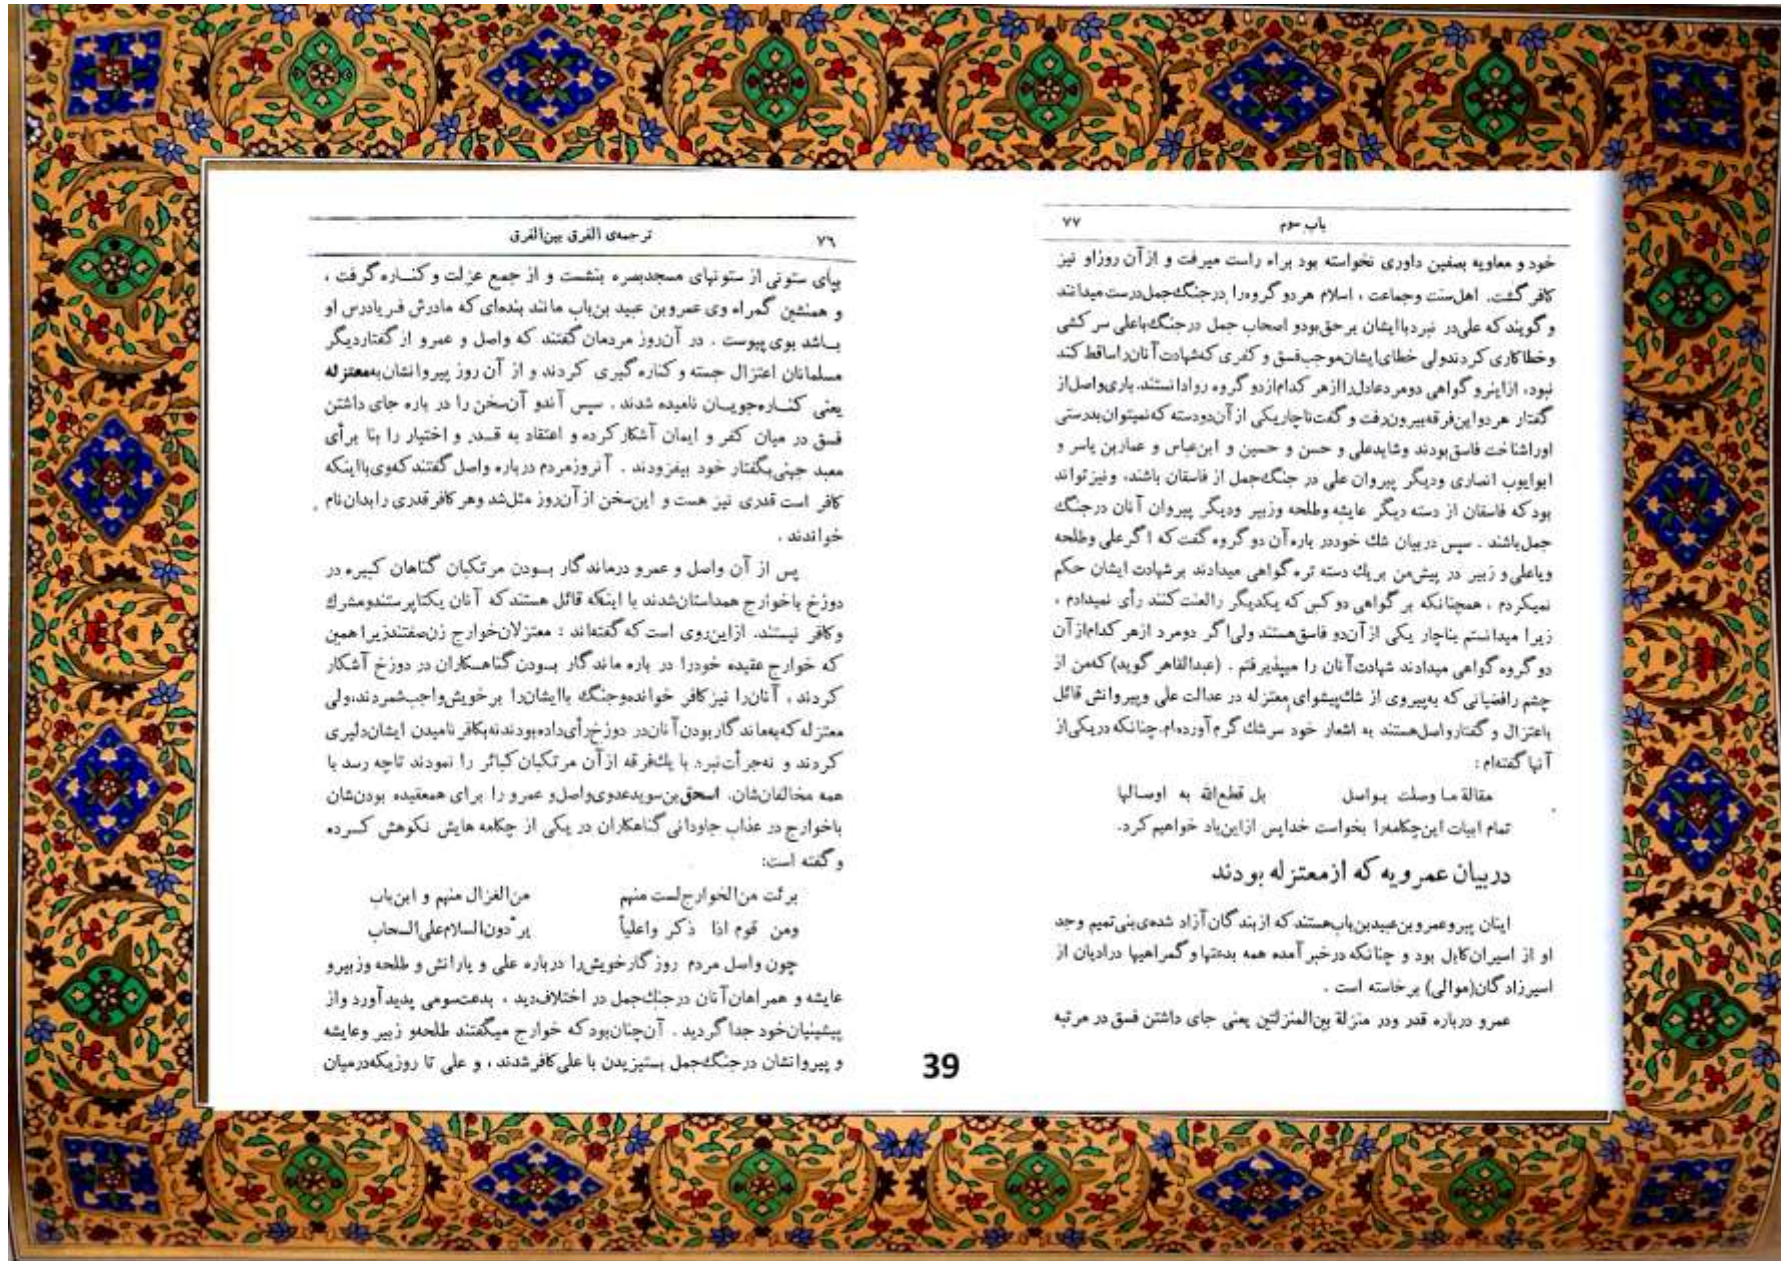 ترجمه‌ی الفرق بین‌الفرق ۷۶
بپای ستونی از ستونهای مسجدبصره بنشست و از جمع عزلت و کناره گرفت ،
و همنشین گمراه وی عمروبن عبید بن‌باب مانند بنده‌ای که مادرش فریادرس او
باشد بوی پیوست . در آن‌روز مردمان گفتند که واصل و عمرو از گفتاردیگر
مسلمانان اعتزال جسته و کناره گیری کردند و از آن روز پیروانشان به‌معتزله
یعنی کناره‌جویان نامیده شدند . سپس آندو آن‌سخن را در باره جای داشتن
فسق در میان کفر و ایمان آشکار کرده و اعتقاد به قدر و اختیار را بنا برأی
معبد جهنی بگفتار خود بیفزودند . آنروزمردم درباره واصل گفتند که‌وی بااینکه
کافر است قدری نیز هست و این‌سخن از آن‌روز مثل‌شد وهر کافر قدری را بدان نام
خواندند .
پس از آن واصل و عمرو درماندگار بودن مرتکبان گناهان کبیره در
دوزخ باخوارج همداستان‌شدند با اینکه قائل هستند که آنان یکتاپرستندومشرك
وکافر نیستند. ازاین‌روی است که گفته‌اند : معتزلان‌خوارج زن‌صفتندزیرا همین
که خوارج عقیده خودرا در باره ماندگار بودن گناهکاران در دوزخ آشکار
کردند ، آنان‌را نیز کافر خوانده‌وجنگ باایشان‌را بر خویش‌واجب‌شمردند،ولی
معتزله که‌بماندگار بودن آنان‌در دوزخ‌رأی‌داده‌بودندنه‌بکافر نامیدن ایشان‌دلیری
کردند و نه‌جرأت‌نبرد با یك‌فرقه از آن مرتکبان کبائر را نمودند تاچه رسد با
همه مخالفان‌شان. اسحق‌بن‌سویدعدوی‌واصل‌و عمرو را برای همعقیده بودن‌شان
باخوارج در عذاب جاودانی گناهکاران در یکی از چکامه هایش نکوهش کرده
و گفته است:
برئت من‌الخوارج‌لست منهم من‌الغزال منهم و ابن‌باب
ومن قوم اذا ذکر واعلیاً یردّون‌السلام‌علی‌السحاب
چون واصل مردم روزگارخویش‌را درباره علی و یارانش و طلحه وزبیرو
عایشه و همراهان‌آنان درجنك‌جمل در اختلاف‌دید ، بدعت‌سومی پدید آورد واز
پیشینیان‌خود جدا گردید . آن‌چنان‌بود که خوارج میگفتند طلحه‌و زبیر وعایشه
و پیروانشان درجنگ‌جمل بستیزیدن با علی کافر شدند ، و علی تا روزیکه‌درمیان
باب سوم ۷۷
خود و معاویه بصفین داوری نخواسته بود براه راست میرفت و از آن روزاو نیز
کافر گشت. اهل‌سنت وجماعت ، اسلام هر دو گروه‌را درجنگ‌جمل‌درست میدانند
و گویند که علی‌در نبردباایشان برحق‌بودو اصحاب جمل درجنگ‌باعلی سرکشی
وخطاکاری کردندولی خطای‌ایشان‌موجب‌فسق و کفری که‌شهادت آنان‌راساقط کند
نبود، ازاینرو گواهی دومردعادل‌رااز هر کدام‌ازدو گروه روادانستند. باری‌واصل‌از
گفتار هر دواین‌فرقه‌بیرون‌رفت و گفت‌ناچار یکی از آن‌دودسته که‌نمیتوان‌بدرستی
اوراشناخت فاسق‌بودند وشایدعلی و حسن و حسین و ابن‌عباس و عماربن یاسر و
ابوایوب انصاری ودیگر پیروان علی در جنگ‌جمل از فاسقان باشند، ونیز تواند
بود که فاسقان از دسته دیگر عایشه وطلحه وزبیر ودیگر پیروان آنان درجنگ
جمل‌باشند . سپس دربیان شك خوددر باره آن دو گروه گفت که اگر علی وطلحه
ویاعلی و زبیر در پیش‌من بریك دسته تره گواهی میدادند برشهادت ایشان حکم
نمیکردم ، همچنانکه بر گواهی دو کس که یکدیگر رالعنت کنند رأی نمیدادم ،
زیرا میدانستم بناچار یکی از آن‌دو فاسق‌هستند ولی اگر دومرد ازهر کدام‌از آن
دو گروه گواهی میدادند شهادت‌آنان را میپذیرفتم . (عبدالقاهر گوید) که‌من از
چشم رافضیانی که به‌پیروی از شك‌پیشوای معتزله در عدالت علی وپیروانش قائل
باعتزال و گفتارواصل‌هستند به اشعار خود سرشك گرم آورده‌ام.چنانکه دریکی‌از
آنها گفته‌ام :
مقالة ما وصلت بواصل بل قطع‌الله به اوصالها
تمام ابیات این‌چکامه‌را بخواست خداپس ازاین‌یاد خواهیم کرد.
در بیان عمرویه که از معتزله بودند
اینان پیروعمروبن‌عبیدبن‌باب‌هستند که از بندگان آزاد شده‌ی‌بنی‌تمیم وجد
او از اسیران‌کابل بود و چنانکه درخبر آمده همه بدعتها و گمراهیها درادیان از
اسیرزادگان(موالی) برخاسته است .
عمرو درباره قدر ودر منزلة بین‌المنزلتین یعنی جای داشتن فسق در مرتبه
39